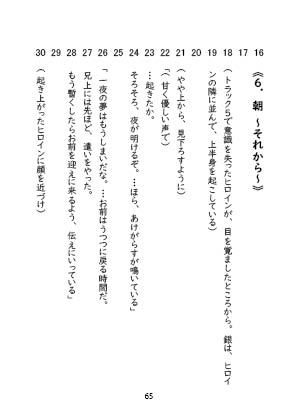 16
17
《６．朝　～それから～》
18
（トラック５で意識を失ったヒロインが、目を覚ましたところから。銀は、ヒロイ
19
ンの隣に並んで、上半身を起こしている）
20
21
（やや上から、見下ろすように）
22
（甘く優しい声で）
23
…起きたか。
24
そろそろ、夜が明けるぞ。…ほら、あけがらすが鳴いている」
25
26
「一夜の夢はもうしまいだな。…お前はうつつに戻る時間だ。
27
兄上には先ほど、遣いをやった。
28
もう暫くしたらお前を迎えに来るよう、伝えにいっている」
29
30
（起き上がったヒロインに顔を近づけ）
65